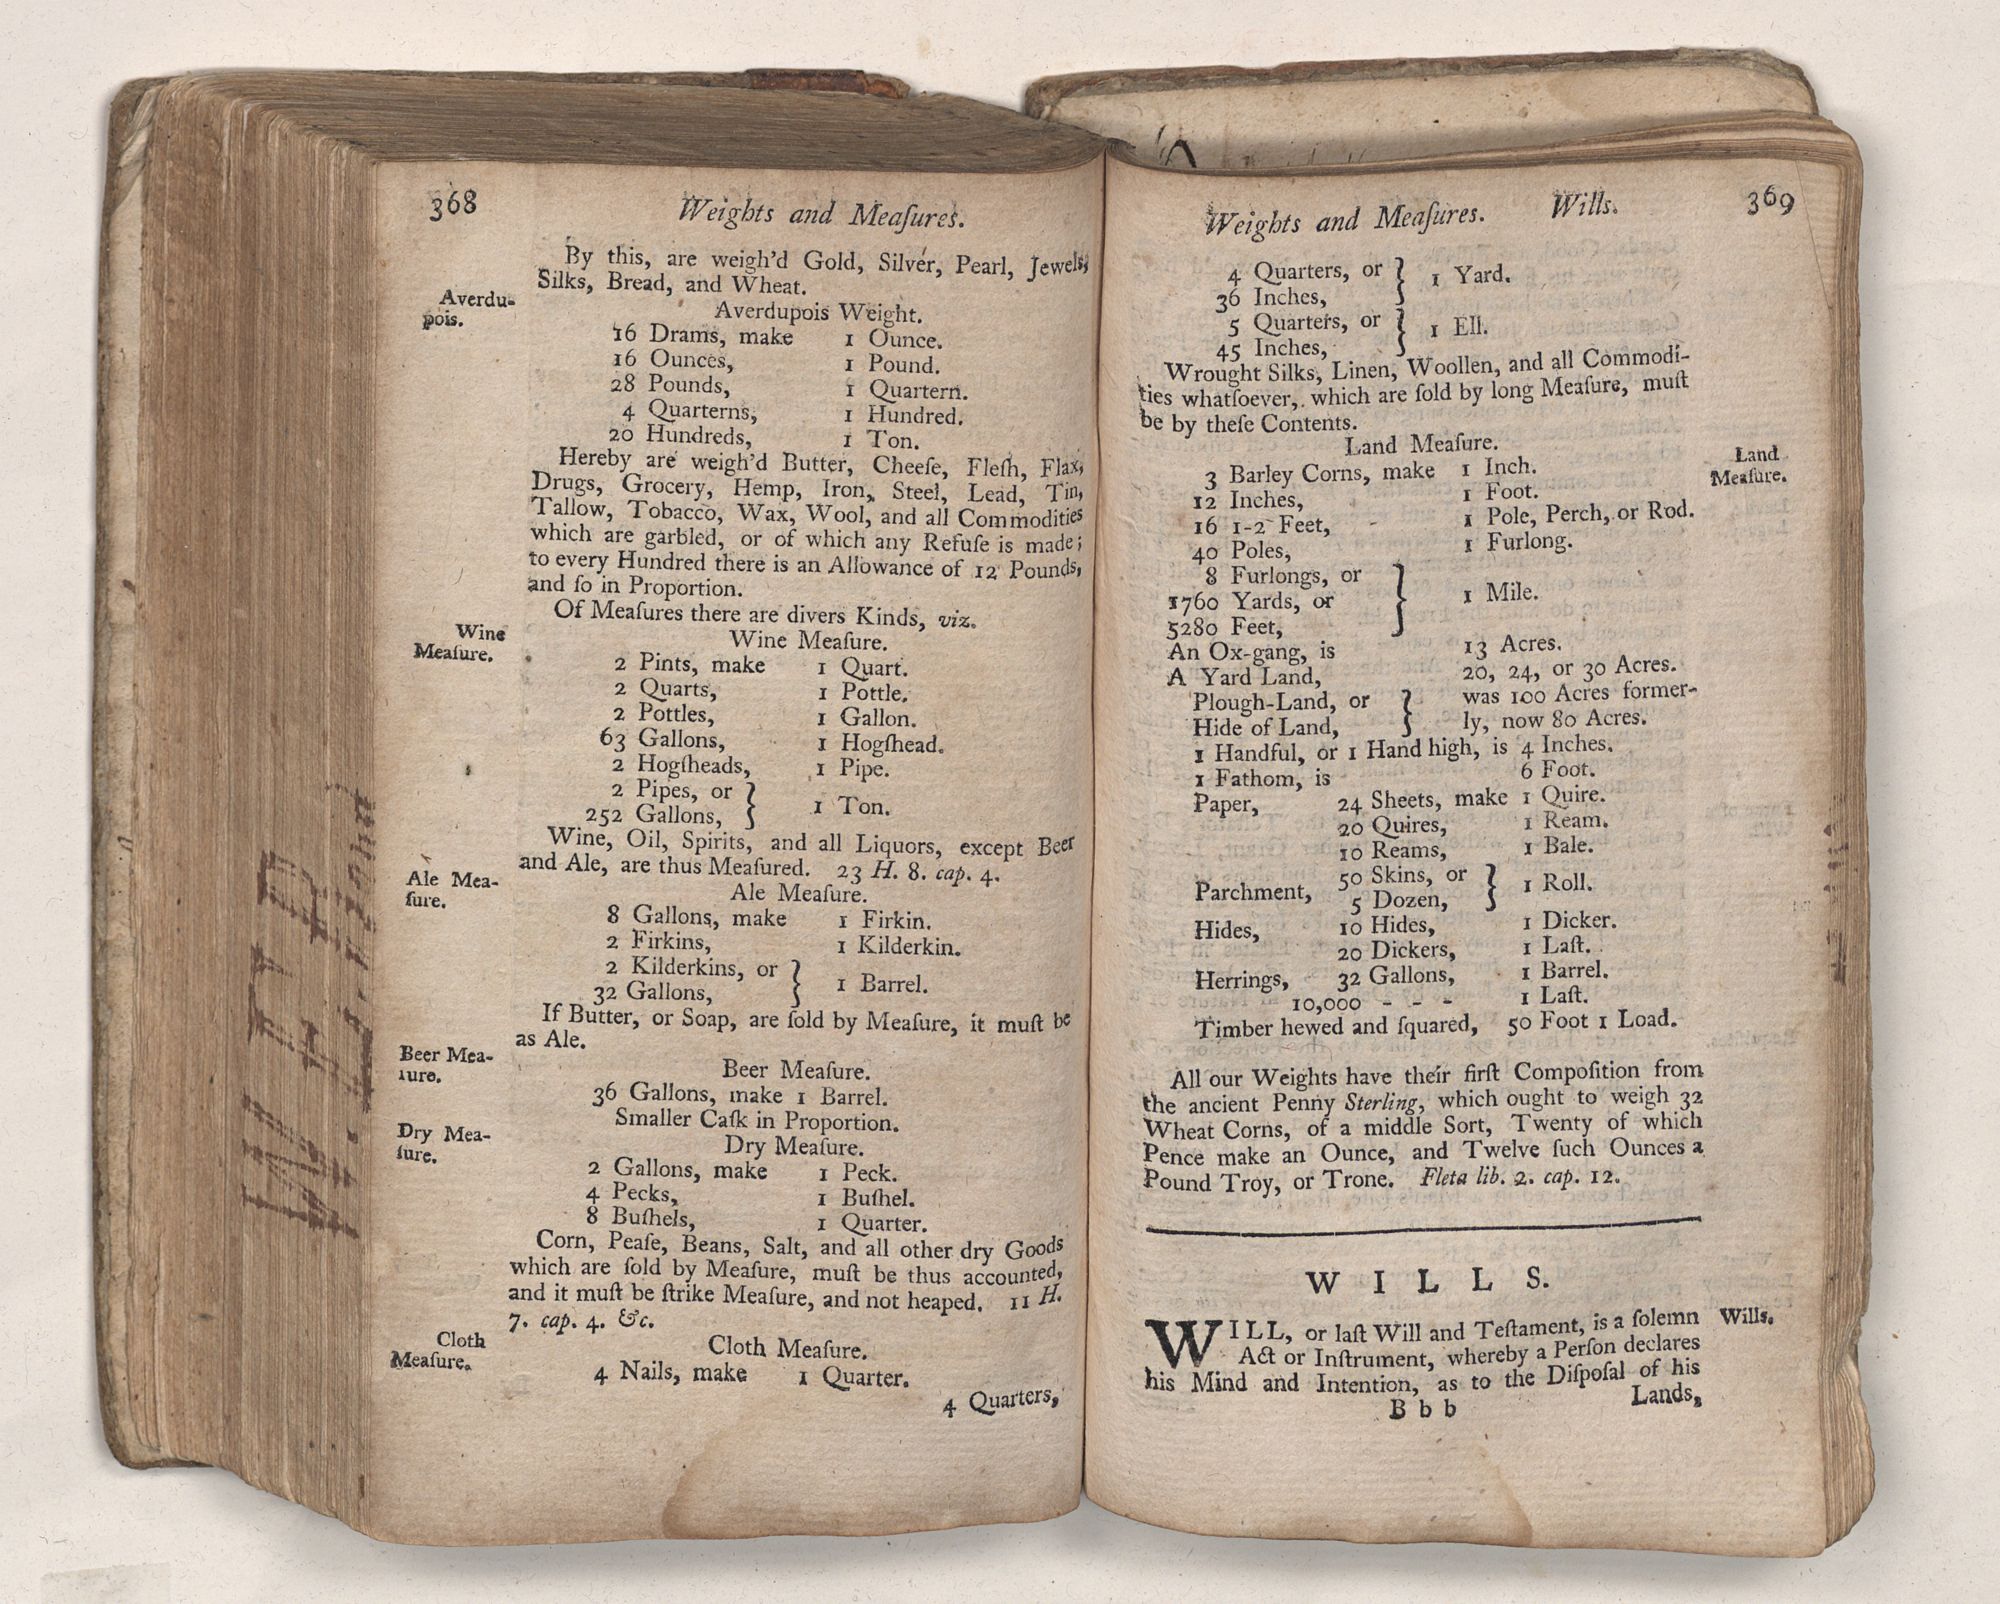 368
Weights and Meaſures.
By this, are weigh'd Gold, Silver, Pearl, Jewels,
Silks, Bread, and Wheat.
Averdu-
pois.
Averdupois Weight.
16 Drams, make 1 Ounce.
16 Ounces, 1 Pound.
28 Pounds, 1 Quartern.
4 Quarterns, 1 Hundred.
20 Hundreds, 1 Ton.
Hereby are weigh'd Butter, Cheeſe, Fleſh, Flax,
Drugs, Grocery, Hemp, Iron, Steel, Lead, Tin,
Tallow, Tobacco, Wax, Wool, and all Commodities
which are garbled, or of which any Refuſe is made;
to every Hundred there is an Allowance of 12 Pounds,
and ſo in Proportion.
Of Meaſures there are divers Kinds, viz.
Wine
Meaſure.
Wine Meaſure.
2 Pints, make 1 Quart.
2 Quarts, 1 Pottle.
2 Pottles, 1 Gallon.
63 Gallons, 1 Hogſhead.
2 Hogſheads, 1 Pipe.
2 Pipes, or
252 Gallons, } 1 Ton.
Wine, Oil, Spirits, and all Liquors, except Beer
and Ale, are thus Meaſured. 23 H. 8. cap. 4.
Ale Mea-
ſure.
Ale Meaſure.
8 Gallons, make 1 Firkin.
2 Firkins, 1 Kilderkin.
2 Kilderkins, or
32 Gallons, } 1 Barrel.
If Butter, or Soap, are ſold by Meaſure, it muſt be
as Ale.
Beer Mea-
ſure.
Beer Meaſure.
36 Gallons, make 1 Barrel.
Smaller Caſk in Proportion.
Dry Mea-
ſure.
Dry Meaſure.
2 Gallons, make 1 Peck.
4 Pecks, 1 Buſhel.
8 Buſhels, 1 Quarter.
Corn, Peaſe, Beans, Salt, and all other dry Goods
which are ſold by Meaſure, muſt be thus accounted,
and it muſt be ſtrike Meaſure, and not heaped. 11 H.
7. cap. 4. &c.
Cloth
Meaſure.
Cloth Meaſure.
4 Nails, make 1 Quarter.
4 Quarters,
Weights and Meaſures. Wills. 369
4 Quarters, or
36 Inches, } 1 Yard.
5 Quarters, or
45 Inches, } 1 Ell.
Wrought Silks, Linen, Woollen, and all Commodi-
ties whatſoever, which are ſold by long Meaſure, muſt
be by theſe Contents.
Land Meaſure.
Land
Meaſure.
3 Barley Corns, make 1 Inch.
12 Inches, 1 Foot.
16 1-2 Feet, 1 Pole, Perch, or Rod.
40 Poles, 1 Furlong.
8 Furlongs, or
1760 Yards, or
5280 Feet, } 1 Mile.
An Ox-gang, is 13 Acres.
A Yard Land, 20, 24, or 30 Acres.
Plough-Land, or } was 100 Acres former-
Hide of Land, ly, now 80 Acres.
1 Handful, or 1 Hand high, is 4 Inches.
1 Fathom, is 6 Foot.
Paper, 24 Sheets, make 1 Quire.
20 Quires, 1 Ream.
10 Reams, 1 Bale.
Parchment, 50 Skins, or
5 Dozen, } 1 Roll.
Hides, 10 Hides, 1 Dicker.
20 Dickers, 1 Laſt.
Herrings, 32 Gallons, 1 Barrel.
10,000 - - - 1 Laſt.
Timber hewed and ſquared, 50 Foot 1 Load.
All our Weights have their firſt Compoſition from
the ancient Penny Sterling, which ought to weigh 32
Wheat Corns, of a middle Sort, Twenty of which
Pence make an Ounce, and Twelve ſuch Ounces a
Pound Troy, or Trone. Fleta lib. 2. cap. 12.
WILLS.
WILL, or laſt Will and Teſtament, is a ſolemn
Wills.
Act or Inſtrument, whereby a Perſon declares
his Mind and Intention, as to the Diſpoſal of his
Bbb Lands,